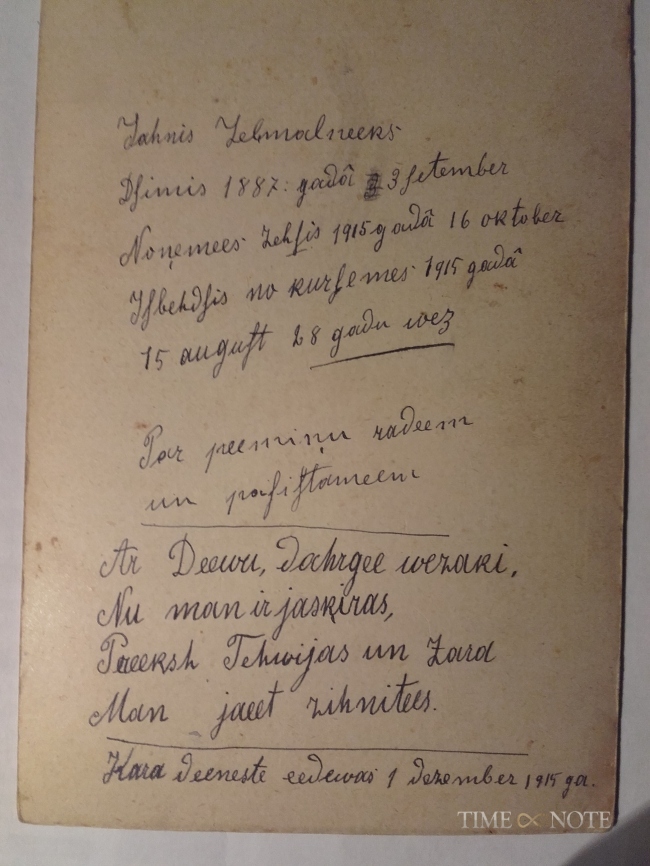 Jahnis Zelmalneeks
Dſimis 1887: gadâ 3 ſetember
Noņemees Zehſis 1915 gadâ 16 oktober
Iſbehdſis no kurſemes 1915 gadâ
15 auguſt 28 gadu wez
Par peemiņu radeem
un paſiſtameem
Ar Deewu, dahrgee wezaki,
Nu man ir jaskiras,
Preeksh Tehwijas un Zara
Man jaeet zihnitees.
Kara deeneste eedewas 1 dezember 1915 ga.
TIME ∝ NOTE